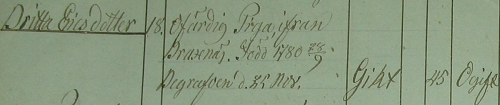 Britta Ersdotter 18. ofärdig Piga, ifrån
Brasenäs. Född 1780 28/9.
Begrafven d. 25 Nov. Gikt 45 Ogift